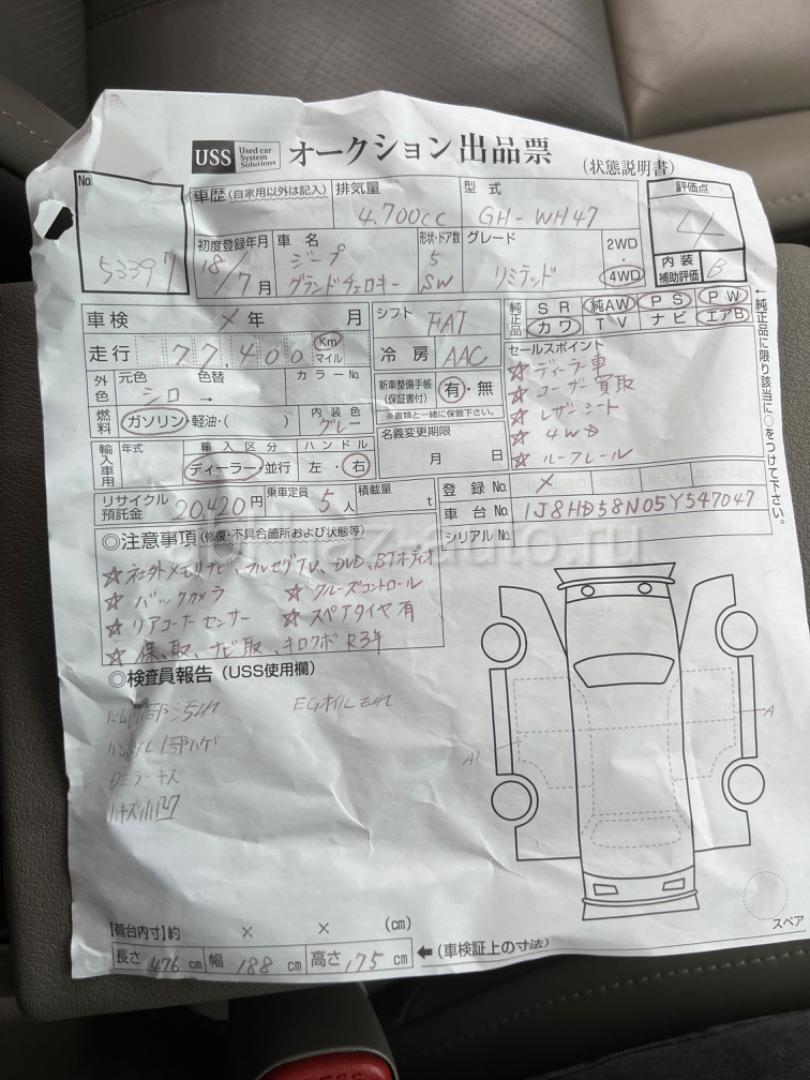 USS Used car System Solutions オークション 出品票 (状態説明書)
No. 53397
車歴 (自家用以外は記入) 排気量 4.700cc 型式 GH-WH47
評価点 4
内装補助評価 B
初度登録年月 18/7月 車名 ジープ グランドチェロキー 形状・ドア数 5 SW グレード リミテッド 2WD・4WD
車検 × 年 月
走行 77,400 Km マイル
外色 元色 シロ 色替 → カラーNo.
燃料 ガソリン・軽油・( ) 内装色 グレー
輸入車用 年式 輸入区分 ディーラー・並行 ハンドル 左・右
リサイクル預託金 20,420円 乗車定員 5人 積載量 t
シフト FAT
冷房 AAC
新車整備手帳 (保証書付) 有・無
※書類と一緒に保管下さい。
名義変更期限 月 日
純正品 SR 純AW PS PW
カワ TV ナビ エアB
←純正品に限り該当に○をつけて下さい。
セールスポイント
☆ ディーラー車
☆ ユーザー買取
☆ レザーシート
☆ 4WD
☆ ルーフレール
登録No. ×
車台No. 1J8HD58N05Y547047
シリアルNo.
◎注意事項 (修復・不具合箇所および状態等)
☆ 社外メモリナビ、フルセグTV、DVD、BTオーディオ
☆ バックカメラ ☆ クルーズコントロール
☆ リアコーナーセンサー ☆ スペアタイヤ有
☆ 保、取、ナビ取、キロクボ R3年
◎検査員報告 (USS使用欄)
EGオイルモレ
ハンドル1部ハゲ
A1
A
スペア
【荷台内寸】約 × × (cm)
長さ 476 cm 幅 188 cm 高さ 175 cm ← (車検証上の寸法)
abhaz-auto.ru